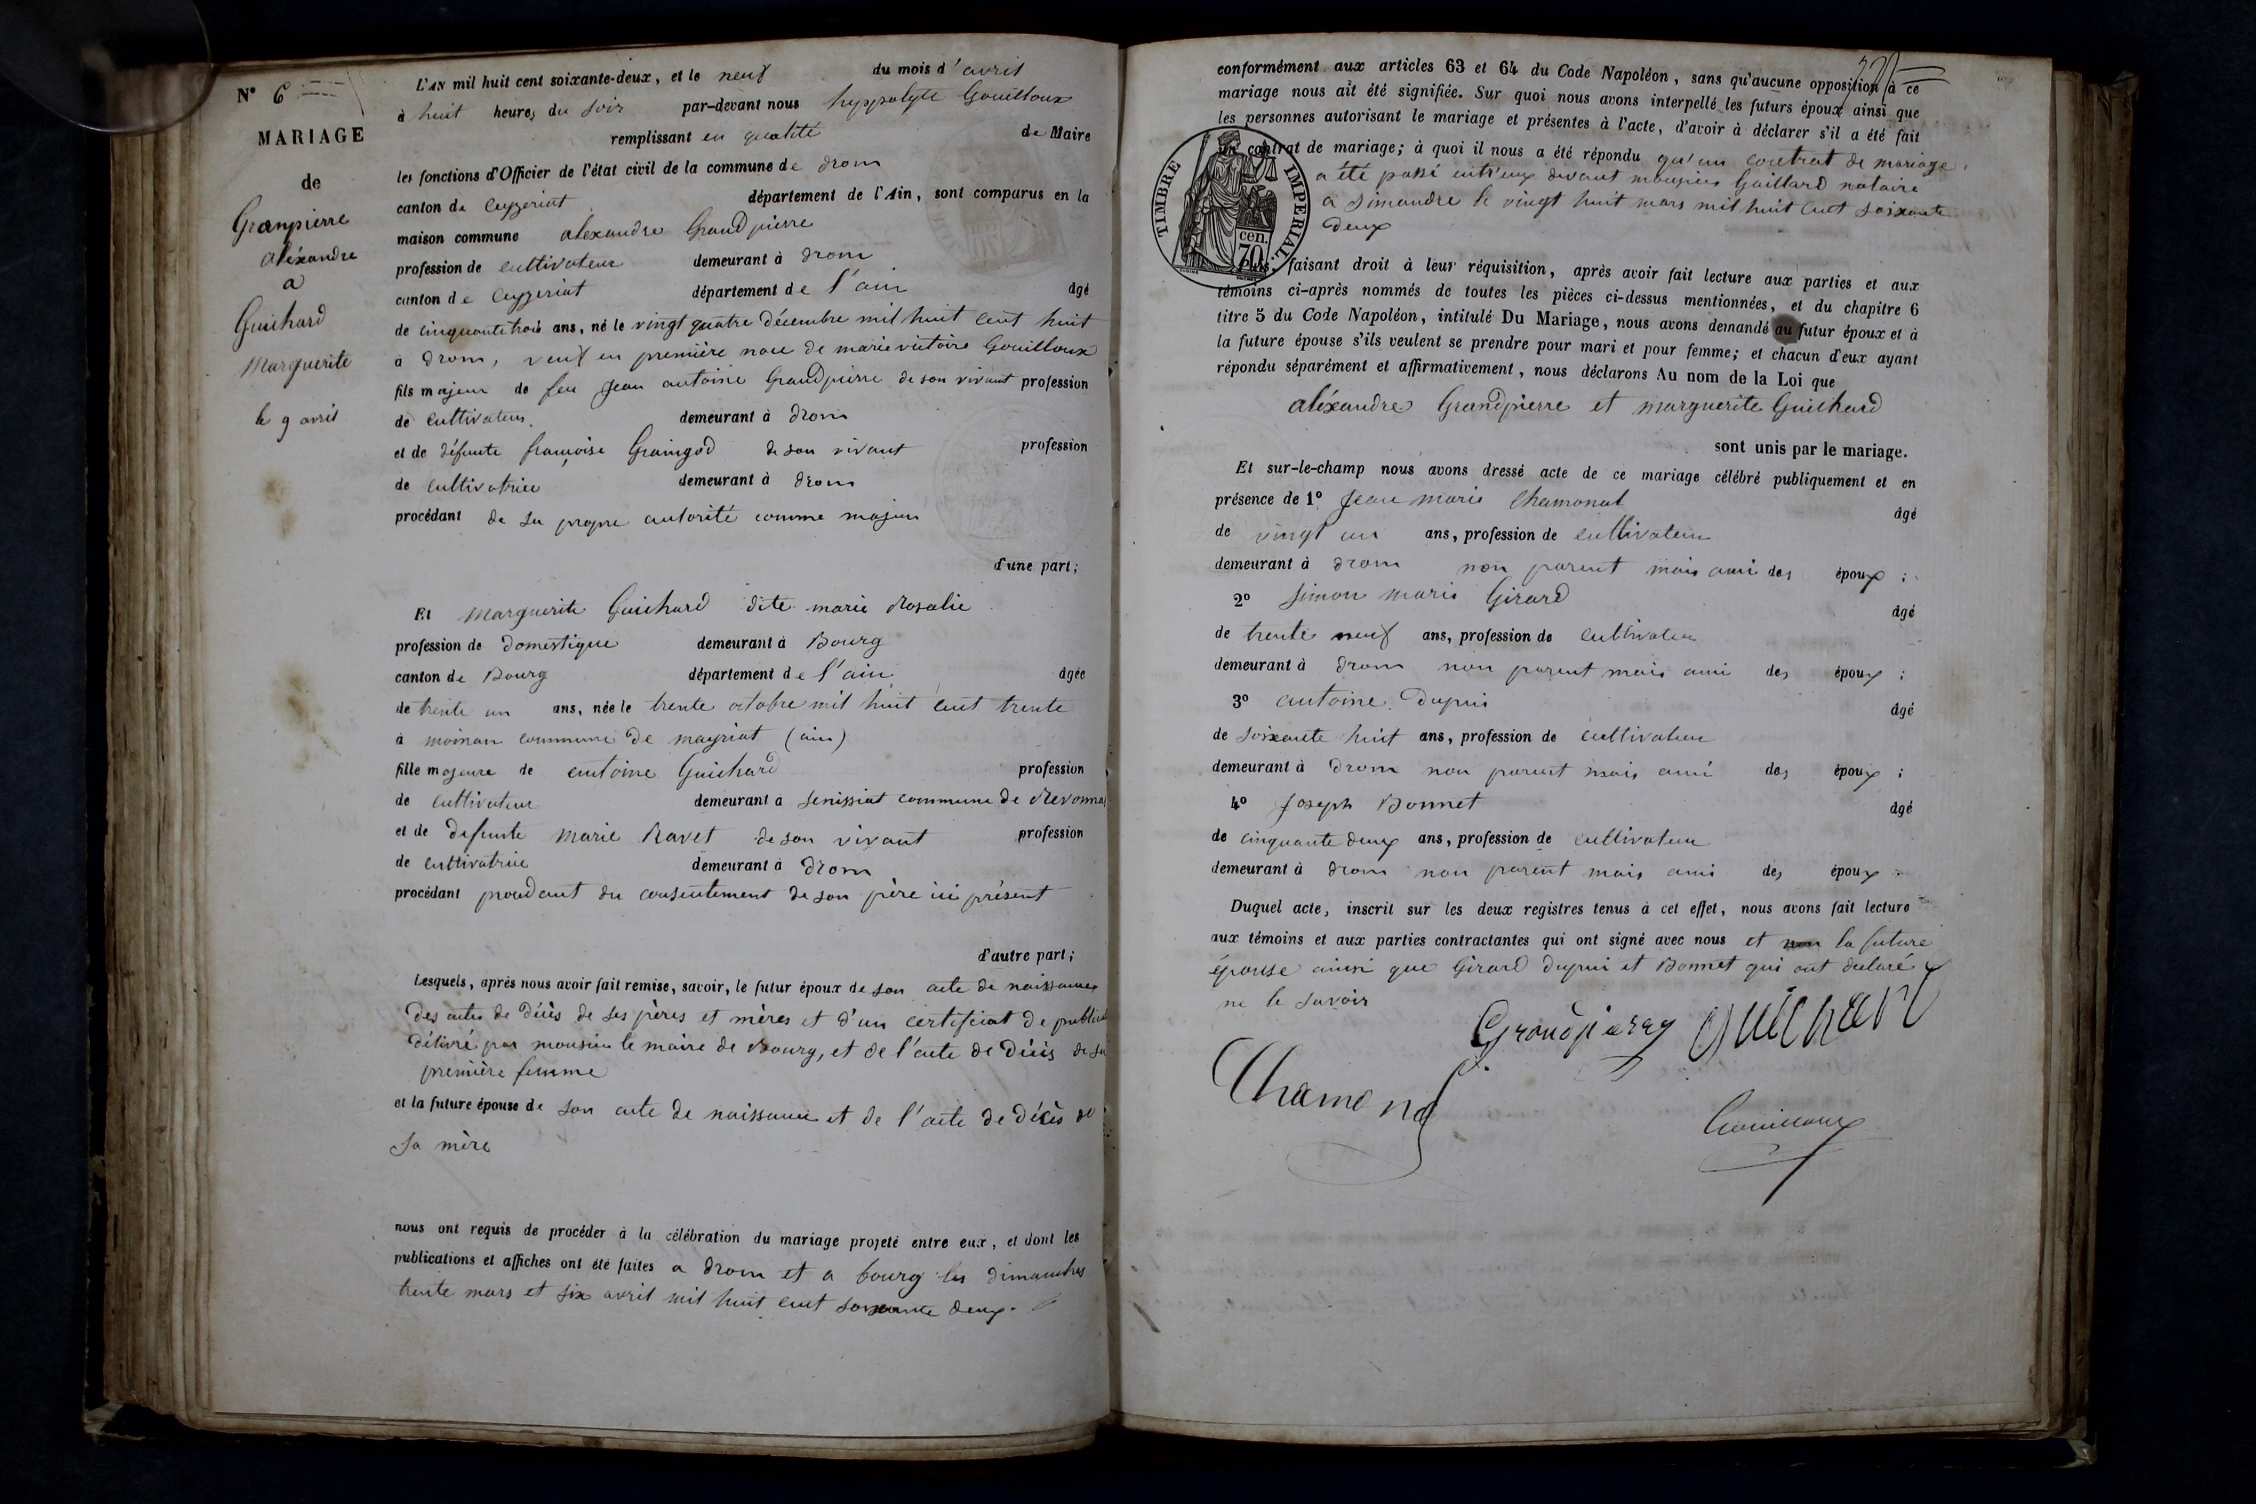 N° 6
MARIAGE
de
Granpierre
aléxandre
a
Guichard
Marguerite
le 9 avril
L'AN mil huit cent soixante-deux, et le neuf du mois d'avril
à huit heures du soir par-devant nous hyppolyte Gouilloux
remplissant en qualité de Maire
les fonctions d'Officier de l'état civil de la commune de drom
canton de Ceyzeriat département de l'Ain, sont comparus en la
maison commune alexandre Grandpierre
profession de cultivateur demeurant à drom
canton de Ceyzeriat département de l'ain âgé
de cinquante trois ans, né le vingt quatre décembre mil huit cent huit
à drom, veuf en première noce de marie victoire Gouilloux
fils majeur de feu Jean antoine Grandpierre de son vivant profession
de cultivateur demeurant à drom
et de défunte françoise Graingod de son vivant profession
de cultivatrice demeurant à drom
procédant de sa propre autorité comme majeur
d'une part;
Et Marguerite Guichard dite marie Rosalie
profession de domestique demeurant à Bourg
canton de Bourg département de l'ain âgée
de trente un ans, née le trente octobre mil huit cent trente
à moinan commune de mayriat (ain)
fille majeure de antoine Guichard profession
de cultivateur demeurant à senissiat commune de Revonna
et de défunte Marie Ravet de son vivant profession
de cultivatrice demeurant à drom
procédant procédant du consentement de son père ici présent
d'autre part;
Lesquels, après nous avoir fait remise, savoir, le futur époux de son acte de naissance
des actes de décès de ses pères et mères et d'un certificat de
délivré par monsieur le maire de Bourg, et de l'acte de décès de sa
première femme
et la future épouse de son acte de naissance et de l'acte de décès de
sa mère
nous ont requis de procéder à la célébration du mariage projeté entre eux, et dont les
publications et affiches ont été faites a drom et a bourg les dimanches
trente mars et six avril mil huit cent soixante deux.
conformément aux articles 63 et 64 du Code Napoléon, sans qu'aucune opposition à ce
mariage nous ait été signifiée. Sur quoi nous avons interpellé les futurs époux ainsi que
les personnes autorisant le mariage et présentes à l'acte, d'avoir à déclarer s'il a été fait
un contrat de mariage; à quoi il nous a été répondu qu'un contrat de mariage
a été passé entr'eux devant monsieur Gaillard notaire
a simandre le vingt huit mars mil huit cent soixante
deux
TIMBRE IMPERIAL
cen.
70
faisant droit à leur réquisition, après avoir fait lecture aux parties et aux
témoins ci-après nommés de toutes les pièces ci-dessus mentionnées, et du chapitre 6
titre 5 du Code Napoléon, intitulé Du Mariage, nous avons demandé au futur époux et à
la future épouse s'ils veulent se prendre pour mari et pour femme; et chacun d'eux ayant
répondu séparément et affirmativement, nous déclarons Au nom de la Loi que
aléxandre Grandpierre et marguerite Guichard
sont unis par le mariage.
Et sur-le-champ nous avons dressé acte de ce mariage célébré publiquement et en
présence de 1° Jean marie Chamonal âgé
de vingt un ans, profession de cultivateur
demeurant à drom non parent mais ami des époux;
2° Simon marie Girard âgé
de trente neuf ans, profession de cultivateur
demeurant à drom non parent mais ami des époux;
3° antoine Dupui âgé
de soixante huit ans, profession de cultivateur
demeurant à drom non parent mais ami des époux;
4° Joseph Bonnet âgé
de cinquante deux ans, profession de cultivateur
demeurant à drom non parent mais ami des époux
Duquel acte, inscrit sur les deux registres tenus à cet effet, nous avons fait lecture
aux témoins et aux parties contractantes qui ont signé avec nous et non la future
épouse ainsi que Girard dupui et Bonnet qui ont déclaré
ne le savoir
Grandpierre Guichard
Chamonal
Gouilloux